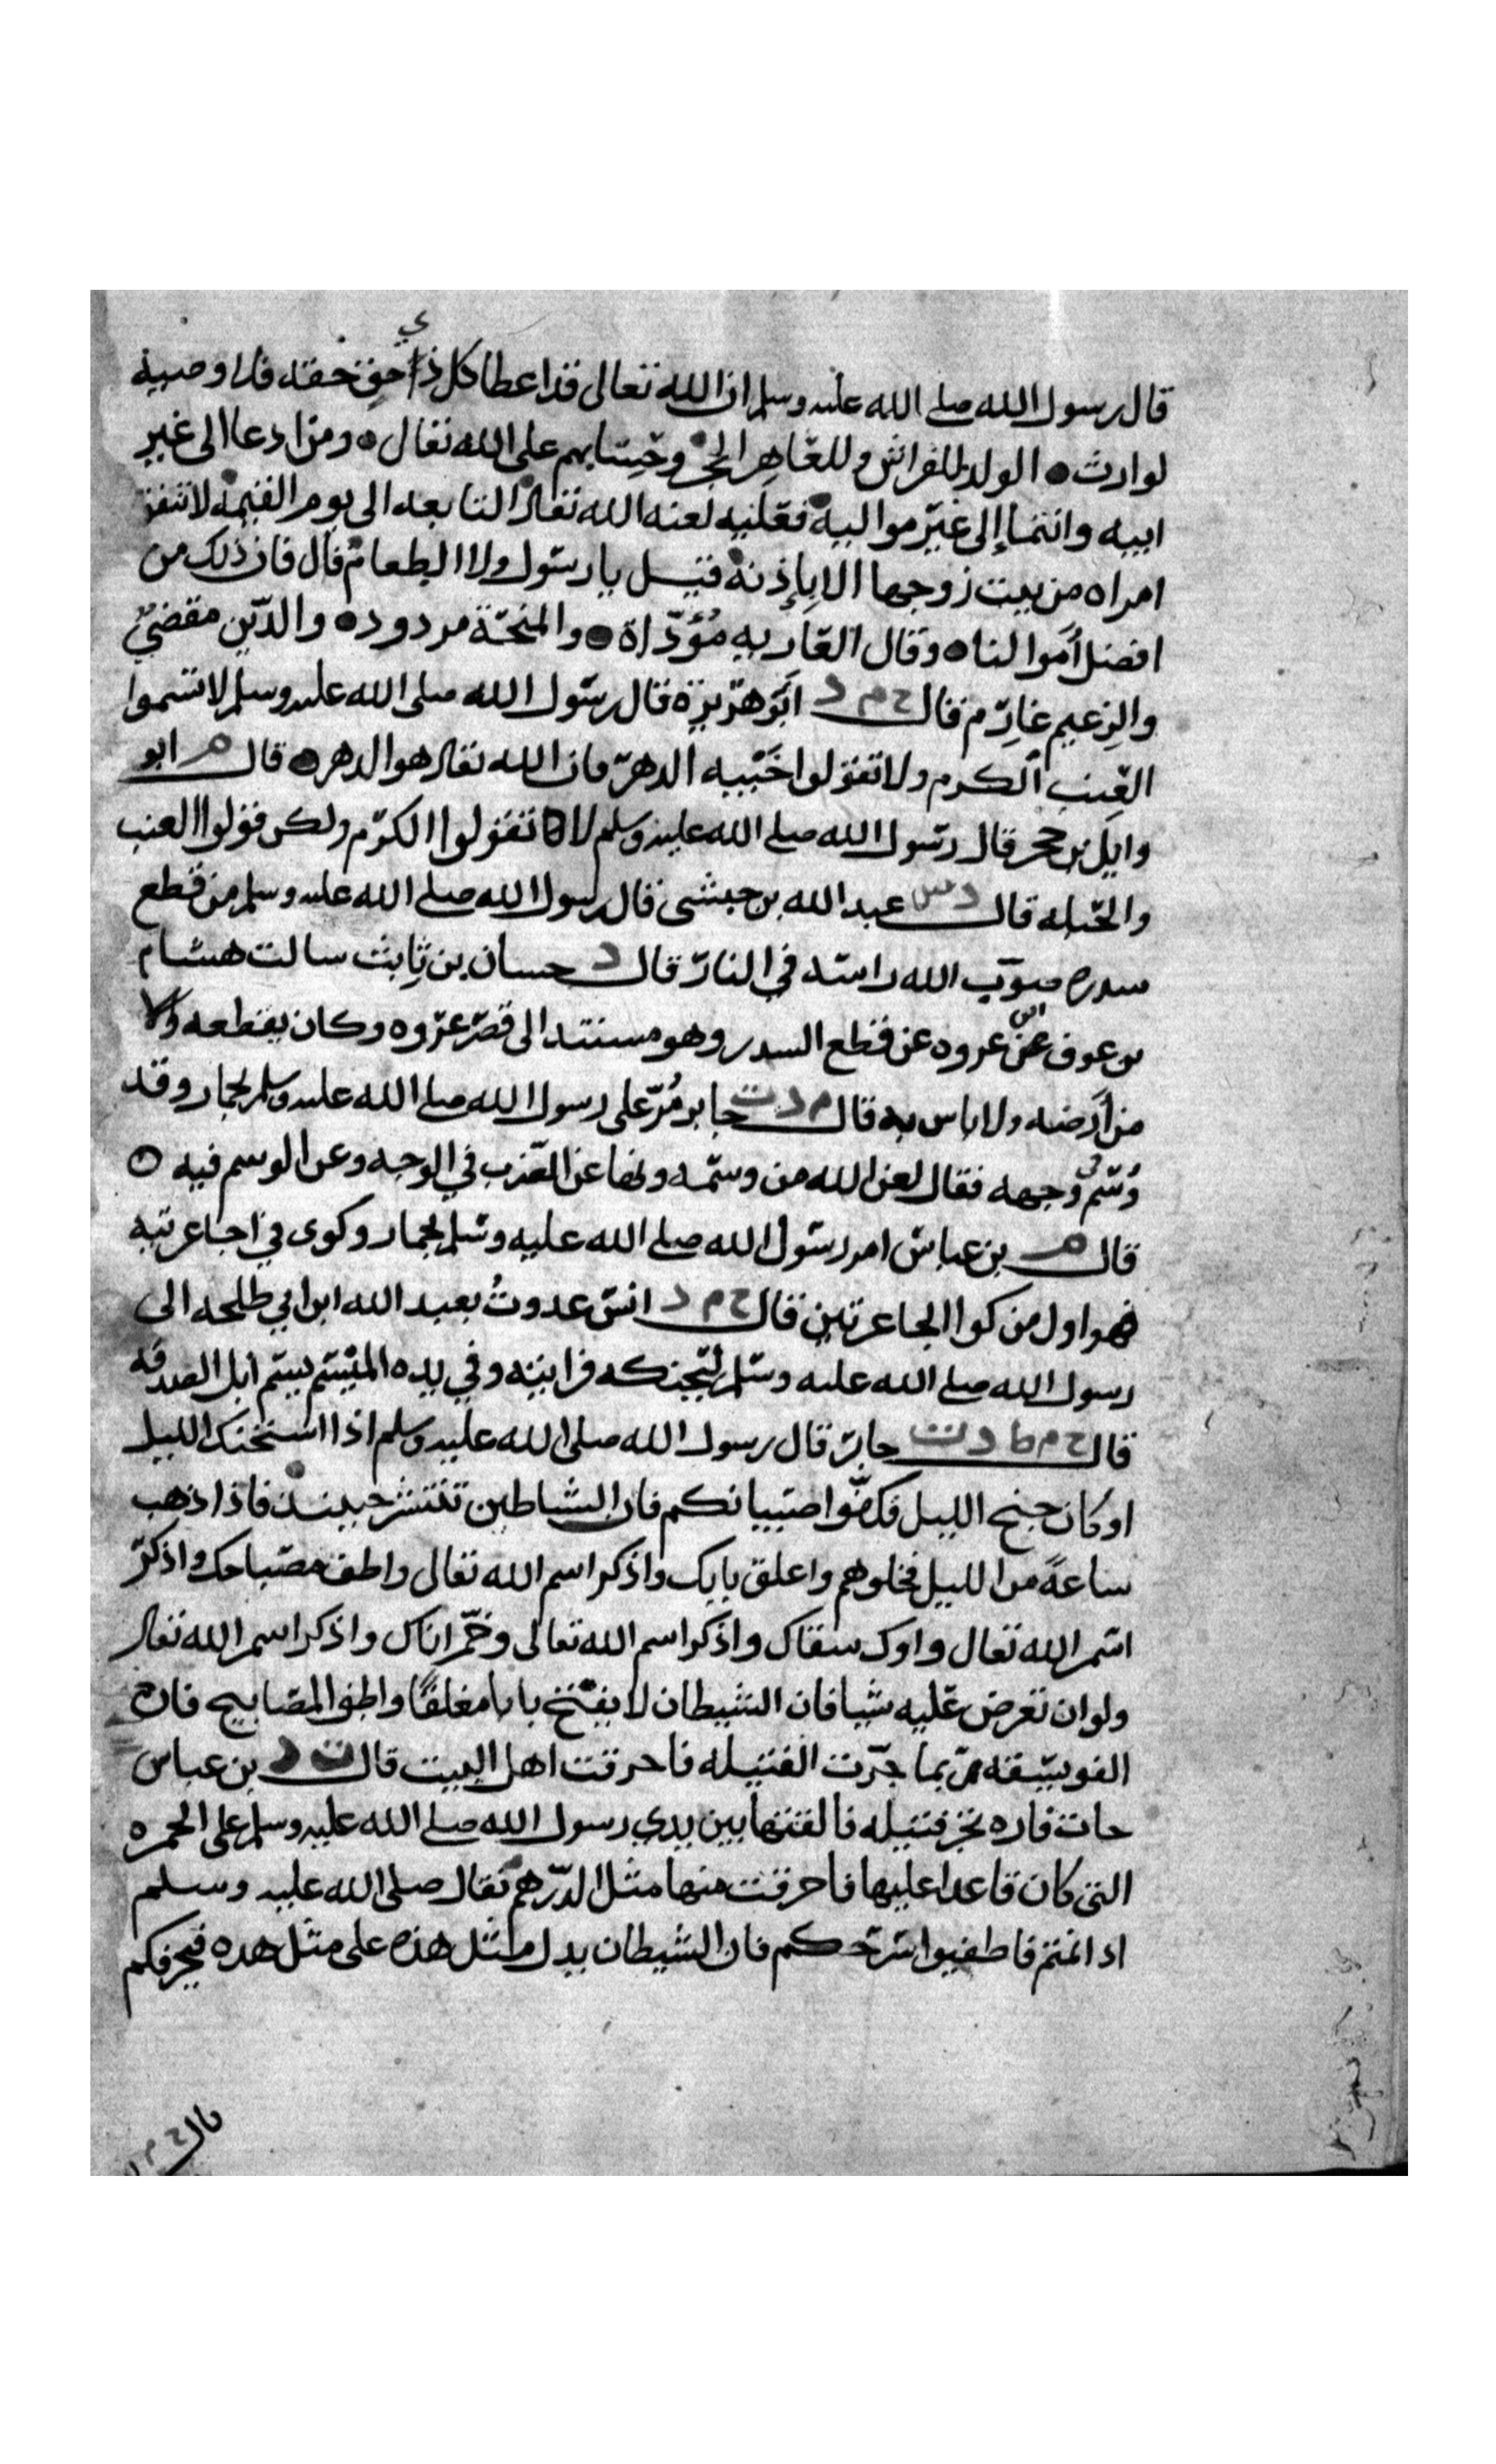 قال رسول الله صلى الله عليه وسلم ان الله تعالى قد اعطا كل ذي حق حقه فلا وصية
لوارث ● الولد للفراش وللعاهر الحجر وحسابهم على الله تعالى ● ومن ادعا الى غير
ابيه وانتما إلى غير مواليه فعليه لعنه الله تعالى التابعه الى يوم القيمة لا تنفق
امراه من بيت زوجها الا بإذنه فقيل يا رسول ولا الطعام قال فان ذلك من
افضل أموالنا ● وقال العاريه مُؤَدّاة ● والمنحّة مردوده ● والدّين مقضيٌ
والزعيم غارم قال خ م د ابو هريرة قال رسول الله صلى الله عليه وسلم لا تسموا
العنب الكرم ولا تقولوا خيبه الدهر فان الله تعالى هو الدهر ● قال م ابو
وايل بن حجر قال رسول الله صلى الله عليه وسلم لا تقولوا الكرم ولكن قولوا العنب
والحبله قال د س عبد الله بن حبشى قال رسول الله صلى الله عليه وسلم من قطع
سدره صوب الله راسه في النار قال د حسان بن ثابت سالت هشام
بن عوف عن ابن عروه عن قطع السدر وهو مستند الى قصر عروه وكان يقطعه
من أرضه ولا باس به قال م د ت جابر مُرّ على رسول الله صلى الله عليه وسلم بحمار وقد
وُسّم في وجهه فقال لعن الله من وسمه ونها عن الضرب في الوجه وعن الوسم فيه ○
قال م بن عباس امر رسول الله صلى الله عليه وسلم بحمار وكوى في جاعرتيه
فهو اول من كوا الجاعرتين قال خ م د انس غدوتُ بعبد الله ابن ابي طلحه الى
رسول الله صلى الله عليه وسلم ليحنكه فرايته وفي يده الميسم يسم ابل الصدقه
قال خ م ط د ت جابر قال رسول الله صلى الله عليه وسلم اذا استجنح الليل
او كان جنح الليل فكفوا صبيانكم فان الشياطين تنتشر حينئذ فاذا ذهب
ساعةً من الليل فخلوهم واغلق بابك واذكر اسم الله تعالى واطف مصباحك واذكر
اسم الله تعالى واوك سقاك واذكر اسم الله تعالى وخمّر اناك واذكر اسم الله تعالى
ولو ان تعرض عليه شيا فان الشيطان لا يفتح بابا مغلقًا واطفو المصابيح فان
الفويسقه ربما جرّت الفتيله فاحرقت اهل البيت قال د بن عباس
جات فاره تجر فتيله فالقتها بين يدي رسول الله صلى الله عليه وسلم على الخمره
التى كان قاعدا عليها فاحرقت منها مثل الدرهم فقال صلى الله عليه وسلم
اذا نمتم فاطفيوا سرجكم فان الشيطان يدل مثل هذه على مثل هده فيحرقكم
قال خ م